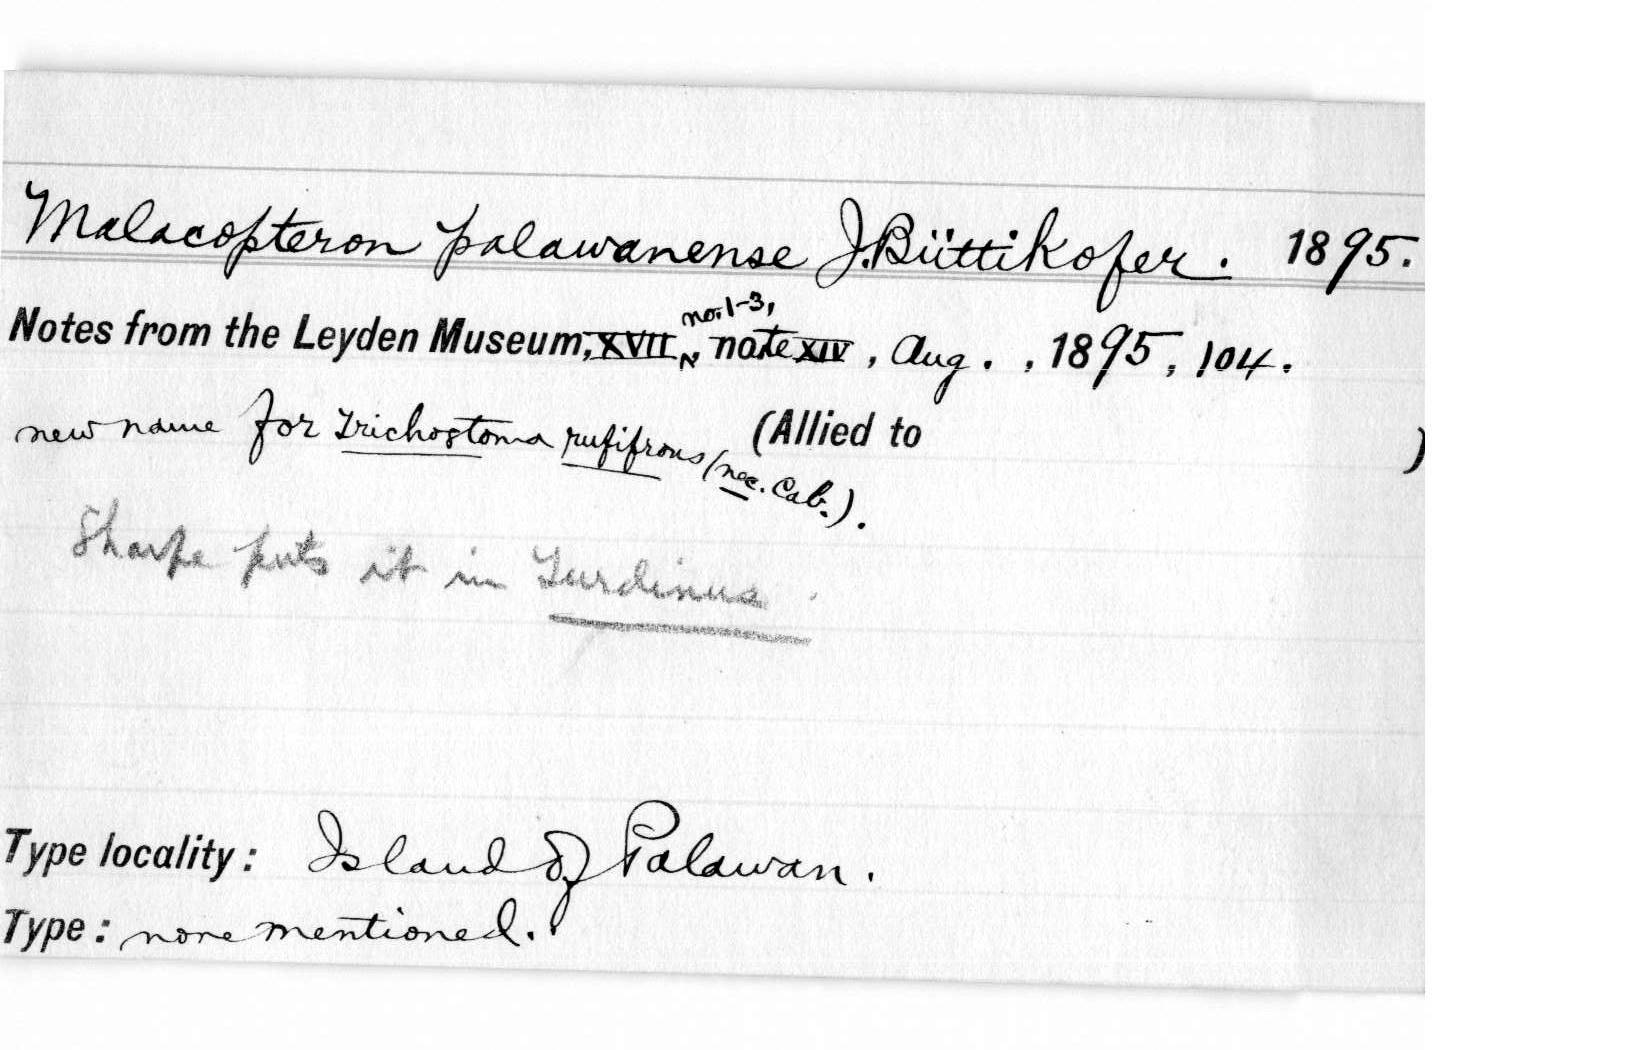 Malacopteron palawanense J.Büttikofer. 1895.
Notes from the Leyden Museum, XVII, no. 1-3, note XIV, Aug. , 1895, 104.
new name for Trichostoma rufifrons (nec. Cab.). (Allied to )
Sharpe puts it in Turdinus.
Type locality: Island of Palawan.
Type: none mentioned.